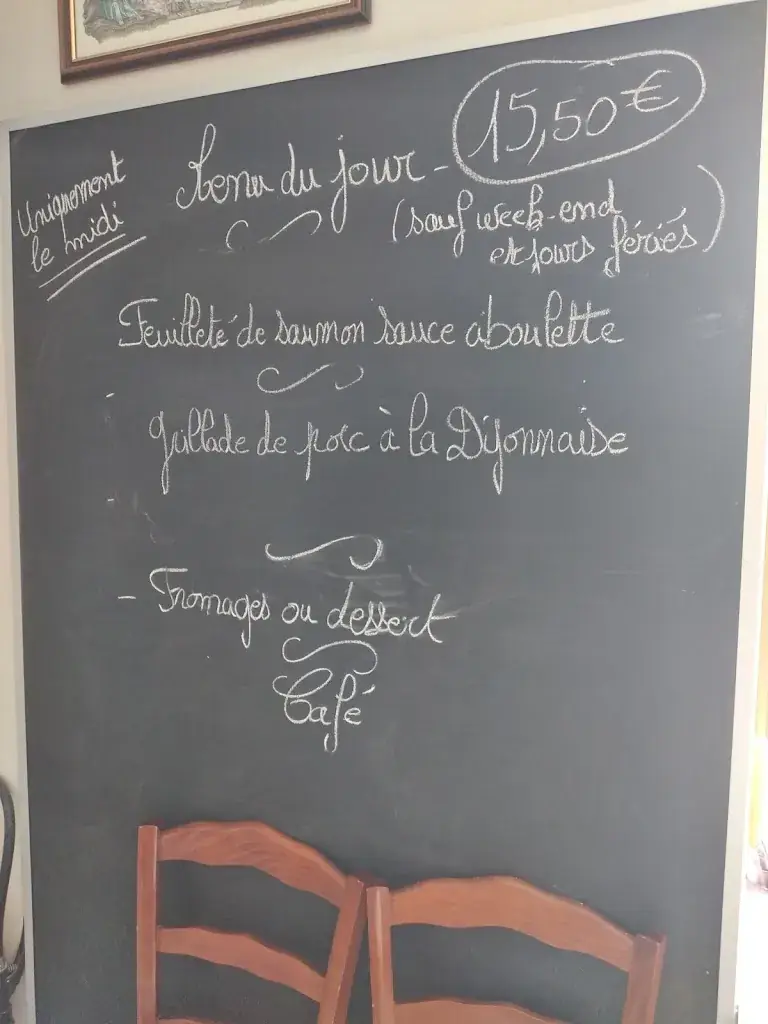 Uniquement
le midi
Menu du jour - 15,50 €
(sauf week-end
et jours fériés)
Feuilleté de saumon sauce aboulette
Grillade de porc à la Dijonnaise
- Fromages ou dessert
Café